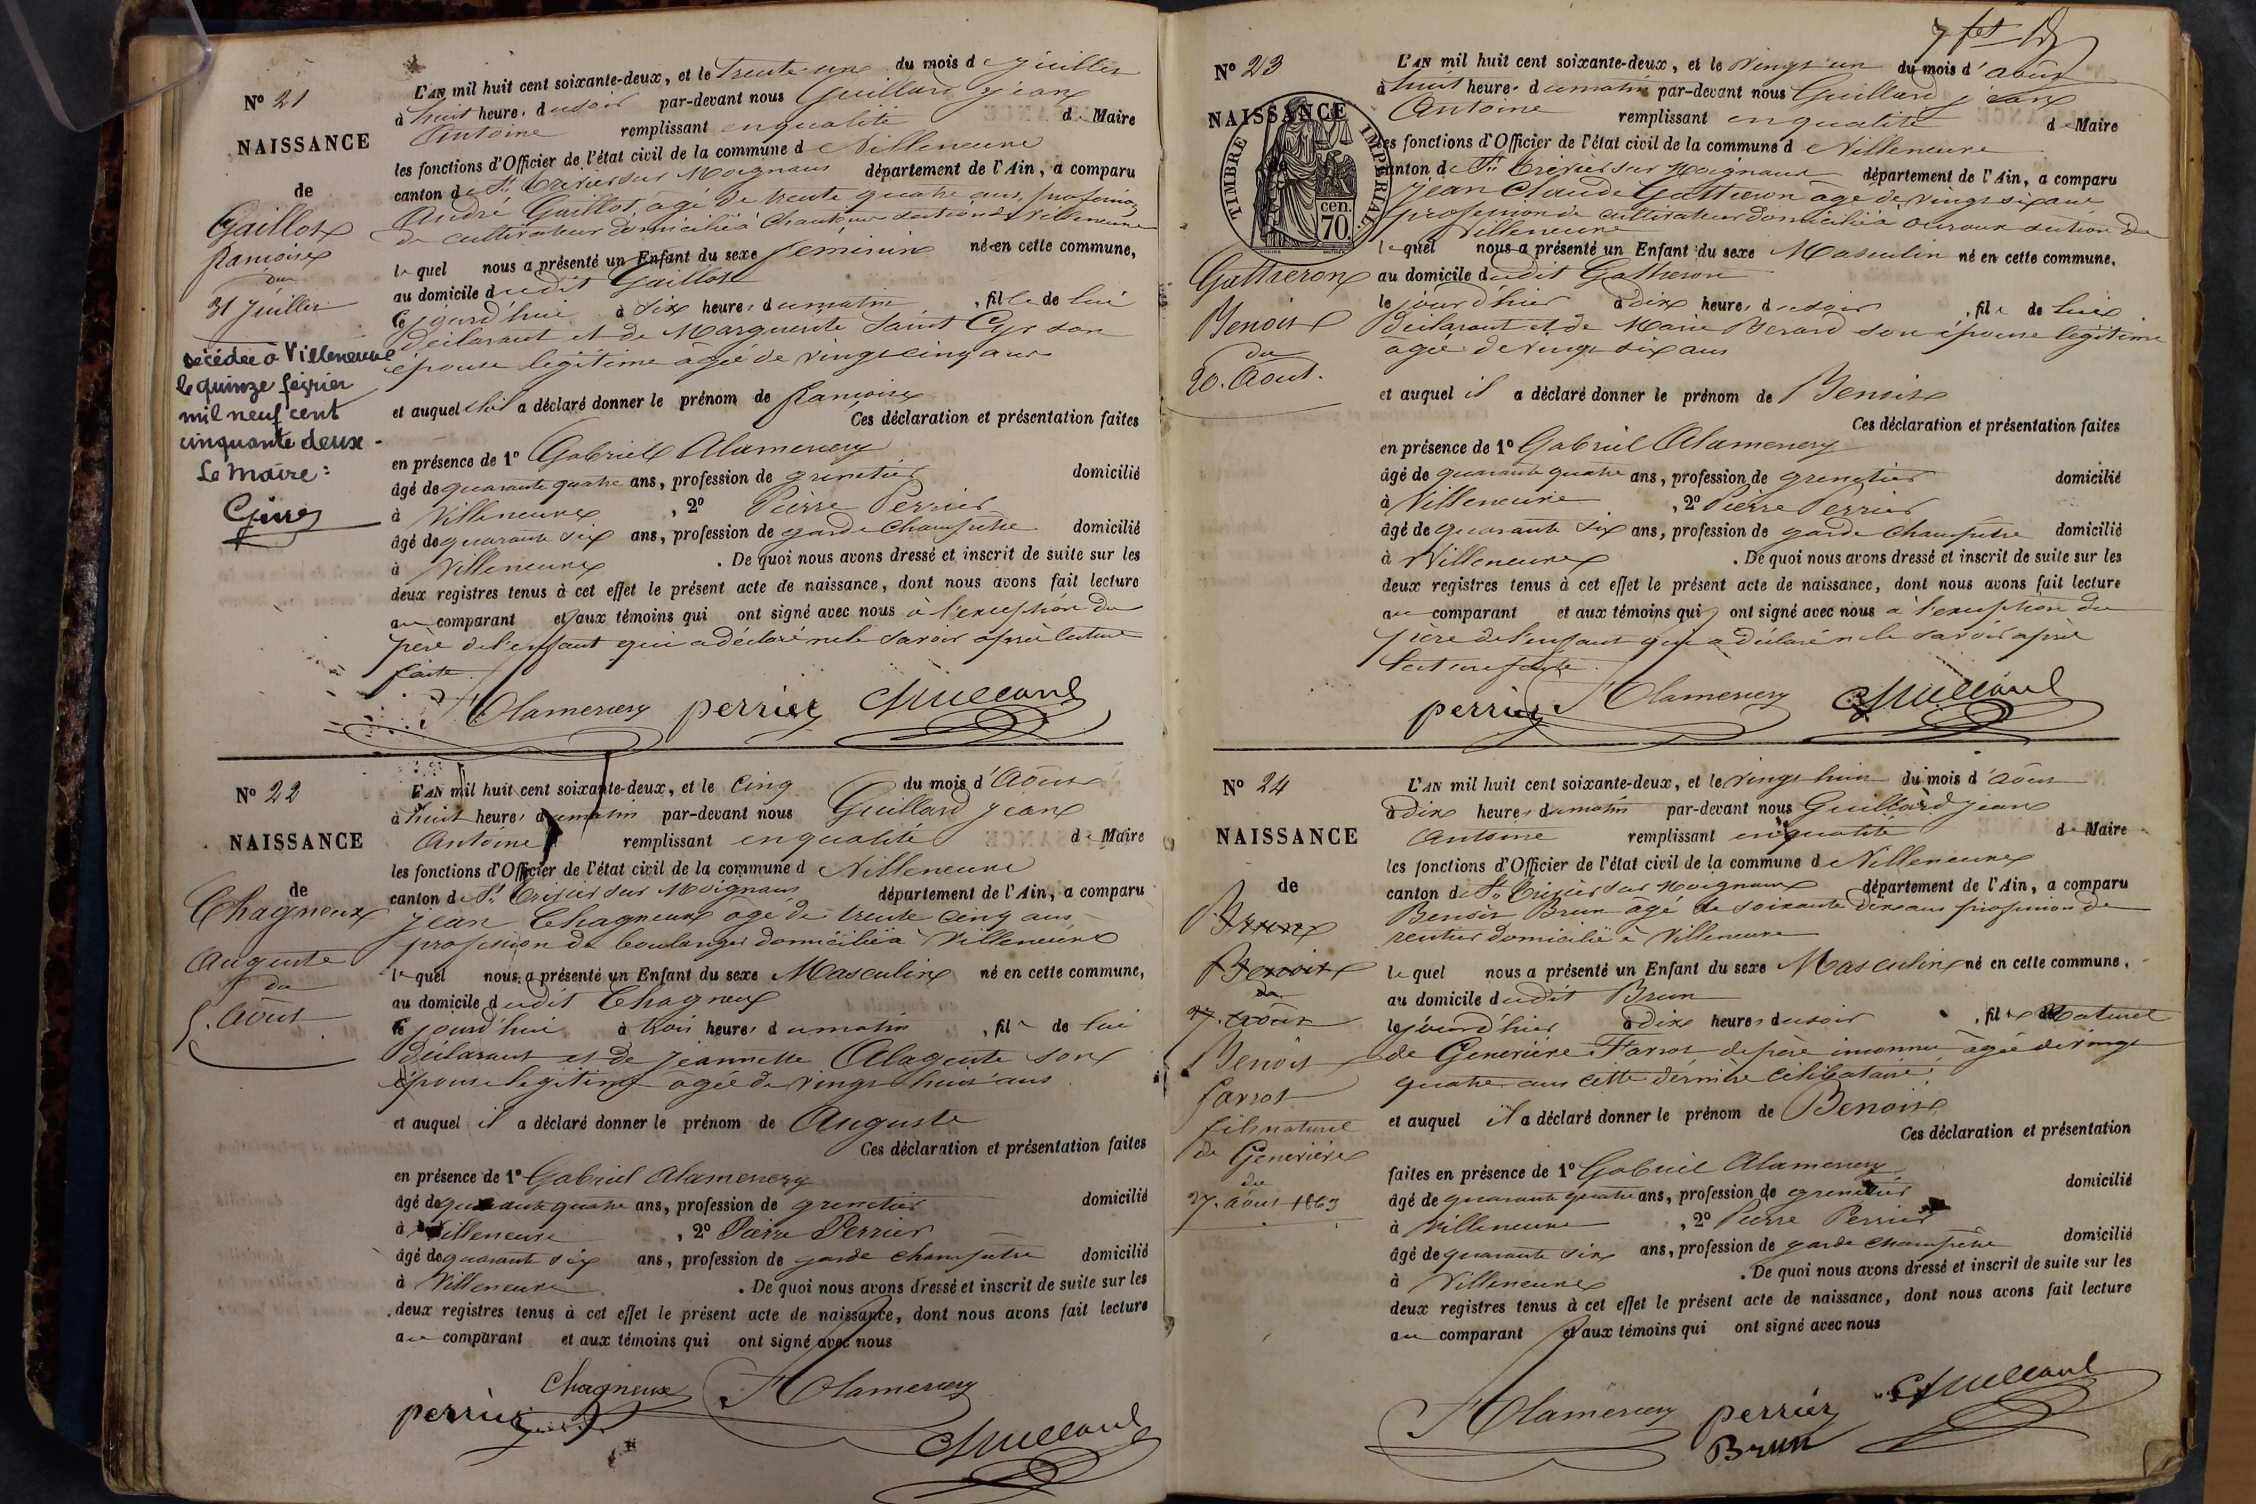 N° 21
NAISSANCE
de
Gaillot
françoise
du
31 juillet
décédée à Villeneuve
le quinze février
mil neuf cent
cinquante deux.
Le Maire:
L'AN mil huit cent soixante-deux, et le trente un du mois de juillet
à huit heures du soir par-devant nous Guillard jean
Antoine remplissant en qualité de Maire
les fonctions d'Officier de l'état civil de la commune de Villeneuve
canton de St Trivier sur Moignans département de l'Ain, a comparu
André Gaillot, âgé de trente quatre ans, profession
de cultivateur domicilié à section de Villeneuve
lequel nous a présenté un Enfant du sexe féminin née en cette commune,
au domicile dudit Gaillot
le jourd'hui à six heures du matin, fille de lui
déclarant et de Marguerite Saint Cyr son
épouse légitime âgée de vingt cinq ans
et auquel il a déclaré donner le prénom de françoise
Ces déclaration et présentation faites
en présence de 1° Gabriel Alamercery
âgé de quarante quatre ans, profession de grenetier domicilié
à Villeneuve, 2° Pierre Perrier
âgé de quarante six ans, profession de garde champêtre domicilié
à Villeneuve. De quoi nous avons dressé et inscrit de suite sur les
deux registres tenus à cet effet le présent acte de naissance, dont nous avons fait lecture
au comparant et aux témoins qui ont signé avec nous à l'exception du
père de l'enfant qui a déclaré ne le savoir après lecture
faite.
Alamercery perrier Guillard
N° 22
NAISSANCE
de
Chagneux
Auguste
du
5. Août
L'AN mil huit cent soixante-deux, et le cinq du mois d'Août
à huit heures du matin par-devant nous Guillard jean
Antoine remplissant en qualité de Maire
les fonctions d'Officier de l'état civil de la commune de Villeneuve
canton de St Trivier sur Moignans département de l'Ain, a comparu
jean Chagneux âgé de trente cinq ans
profession de boulanger domicilié à Villeneuve
lequel nous a présenté un Enfant du sexe Masculin né en cette commune,
au domicile dudit Chagneux
le jourd'hui à trois heures du matin, fils de lui
déclarant et de jeannette Alagente son
épouse légitime âgée de vingt huit ans
et auquel il a déclaré donner le prénom de Auguste
Ces déclaration et présentation faites
en présence de 1° Gabriel Alamercery
âgé de quarante quatre ans, profession de grenetier domicilié
à Villeneuve, 2° Pierre Perrier
âgé de quarante six ans, profession de garde champêtre domicilié
à Villeneuve. De quoi nous avons dressé et inscrit de suite sur les
deux registres tenus à cet effet le présent acte de naissance, dont nous avons fait lecture
au comparant et aux témoins qui ont signé avec nous
Chagneux Alamercery
perrier Guillard
N° 23
NAISSANCE
TIMBRE IMPÉRIAL
70 cen.
Gatheron
Benoit
du
20. Août.
L'AN mil huit cent soixante-deux, et le vingt un du mois d'août
à huit heures du matin par-devant nous Guillard jean
Antoine remplissant en qualité de Maire
les fonctions d'Officier de l'état civil de la commune de Villeneuve
canton de St Trivier sur Moignans département de l'Ain, a comparu
jean Claude Gatheron âgé de vingt six ans
profession de cultivateur domicilié à ouroux section de
Villeneuve
lequel nous a présenté un Enfant du sexe Masculin né en cette commune,
au domicile dudit Gatheron
le jourd'hier à dix heures du soir, fils de lui
déclarant et de Marie Berard son épouse légitime
âgée de vingt six ans
et auquel il a déclaré donner le prénom de Benoit
Ces déclaration et présentation faites
en présence de 1° Gabriel Alamercery
âgé de quarante quatre ans, profession de grenetier domicilié
à Villeneuve, 2° Pierre Perrier
âgé de quarante six ans, profession de garde champêtre domicilié
à Villeneuve. De quoi nous avons dressé et inscrit de suite sur les
deux registres tenus à cet effet le présent acte de naissance, dont nous avons fait lecture
au comparant et aux témoins qui ont signé avec nous à l'exception du
père de l'enfant qui a déclaré ne le savoir après
lecture faite.
perrier Alamercery Guillard
N° 24
NAISSANCE
de
Brun
Benoit
du
27. août
Benoit
farsot
fils naturel
de Geneviève
du
27. août 1863
L'AN mil huit cent soixante-deux, et le vingt huit du mois d'août
à dix heures du matin par-devant nous Guillard jean
Antoine remplissant en qualité de Maire
les fonctions d'Officier de l'état civil de la commune de Villeneuve
canton de St Trivier sur Moignans département de l'Ain, a comparu
Benoit Brun âgé de soixante dix ans profession de
rentier domicilié à Villeneuve
lequel nous a présenté un Enfant du sexe Masculin né en cette commune,
au domicile dudit Brun
le jourd'hier à dix heures du soir, fils naturel
de Geneviève Farsot de père inconnu âgée de vingt
quatre ans cette dernière célibataire
et auquel il a déclaré donner le prénom de Benoit
Ces déclaration et présentation
faites en présence de 1° Gabriel Alamercery
âgé de quarante quatre ans, profession de grenetier domicilié
à Villeneuve, 2° Pierre Perrier
âgé de quarante six ans, profession de garde champêtre domicilié
à Villeneuve. De quoi nous avons dressé et inscrit de suite sur les
deux registres tenus à cet effet le présent acte de naissance, dont nous avons fait lecture
au comparant et aux témoins qui ont signé avec nous
Alamercery perrier Guillard
Brun